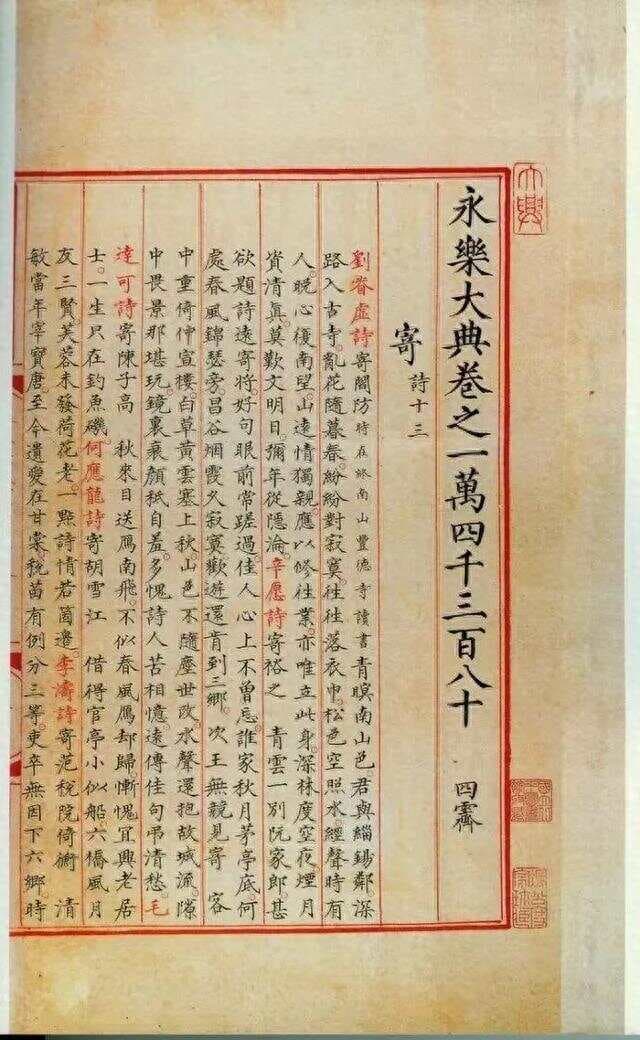 永樂大典卷之一萬四千三百八十 四霽
寄 詩十三
劉眘虛詩寄閻防時在終南山豐德寺讀書青暝南山色。君與緇錫鄰深
路入古寺。亂花隨暮春。紛紛對寂寞。往往落衣巾。松色空照水。經聲時有
人。晚心復南望。山遠情獨親。應以修往業。亦唯立此身。深林度空夜。煙月
資清真。莫歎文明日。彌年從隱淪。辛愿詩寄裕之 青雲一別阮家郎甚
欲題詩遠寄將。好句眼前常蹉過。佳人心上不曾忘。誰家秋月茅亭底何
處春風錦瑟旁。昌谷烟霞久寂寞。歡遊還肯到三鄉。次王無競見寄 客
中重倚仲宣樓。白草黃雲塞上秋。山色不隨塵世改。水聲還抱故城流。隙
中畏景那堪玩。鏡裏衰顏秪自羞。多愧詩人苦相憶遠傳佳句弔清愁。毛
達可詩寄陳子高 秋來日送鴈南飛。不似春風鴈却歸。慚愧宜興老居
士。一生只在釣魚磯。何應龍詩寄胡雪江 借得官亭小似船。六橋風月
友三賢。芙蓉未發荷花老。一點詩情若箇邊。李濤詩寄范稅院倚 清
敏當年宰寶唐。至今遺愛在甘棠。稅苗有例分三等。吏卒無因下六鄉。時